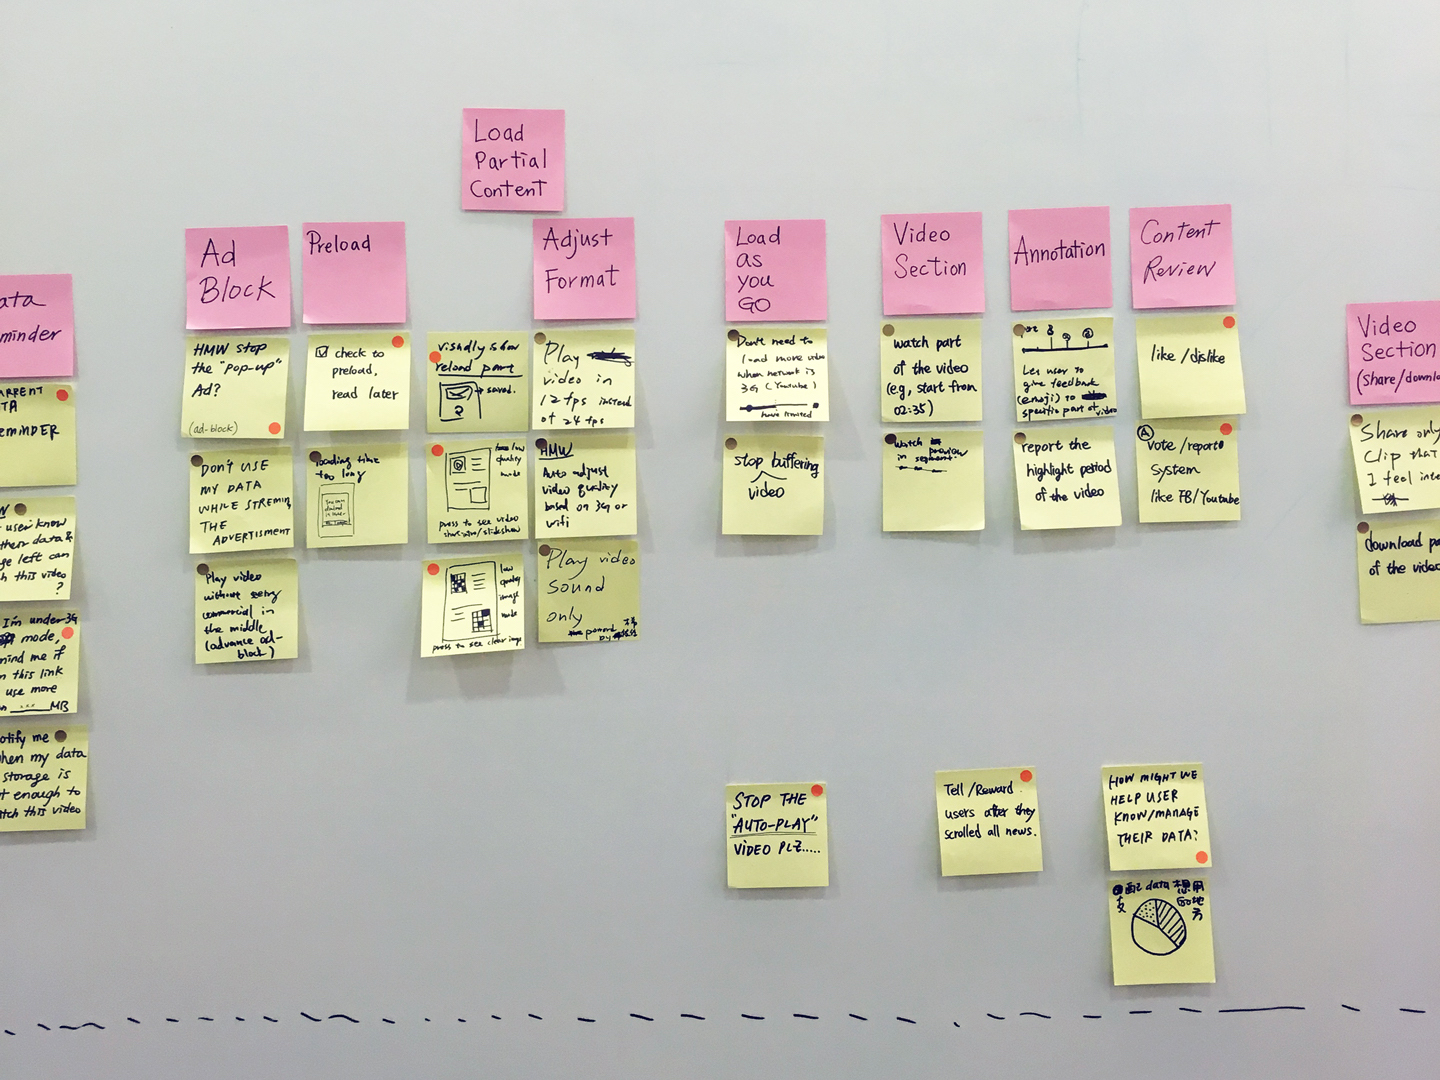 Load
Partial
Content
ata
minder
ARRENT
TA
REMINDER
user know
their data &
ge left can
h this video
?
I'm under 3G
mode,
mind me if
n this link
use more
MB
otify me
when my data
storage is
t enough to
tch this video
Ad
BLOCK
HMW STOP
the "pop-up"
Ad?
(ad-block)
DON'T USE
MY DATA
WHILE STREMING
THE
ADVERTISMENT
Play video
without seeing
commercial in
the middle
(advance ad-
block)
Preload
check to
preload,
read later
loading time
too long
visually show
reload part
saved.
low
quality
mode
press to see video
low
quality
image
mode
press to see clear image
Adjust
Format
Play
video in
12 fps instead
of 24 fps
HMW
Auto adjust
video quality
based on 3G or
wifi
Play video
sound
only
Load
as
you
GO
Don't need to
load more video
when network is
3G (Youtube)
have limited
stop buffering
video
Video
Section
watch part
of the video
(eg, start from
02:35)
watch
preview
in segment
Annotation
Let user to
give feedback
(emoji) to
specific part of video
report the
highlight period
of the video
Content
Review
like / dislike
A
vote / report
system
like FB/Youtube
Video
Section
(share/downlo
Share only
Clip that
I feel inte
download pa
of the video
STOP THE
"AUTO-PLAY"
VIDEO PLZ.....
Tell /Reward
users after they
scrolled all news.
HOW MIGHT WE
HELP USER
KNOW/MANAGE
THEIR DATA?
配 data 想用
的地
方